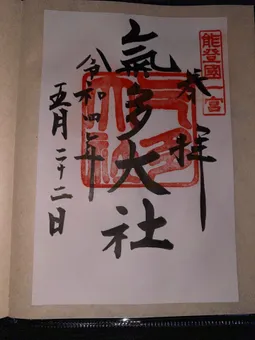 能登國一宮
奉拝
氣多大社
令和四年
五月二十二日